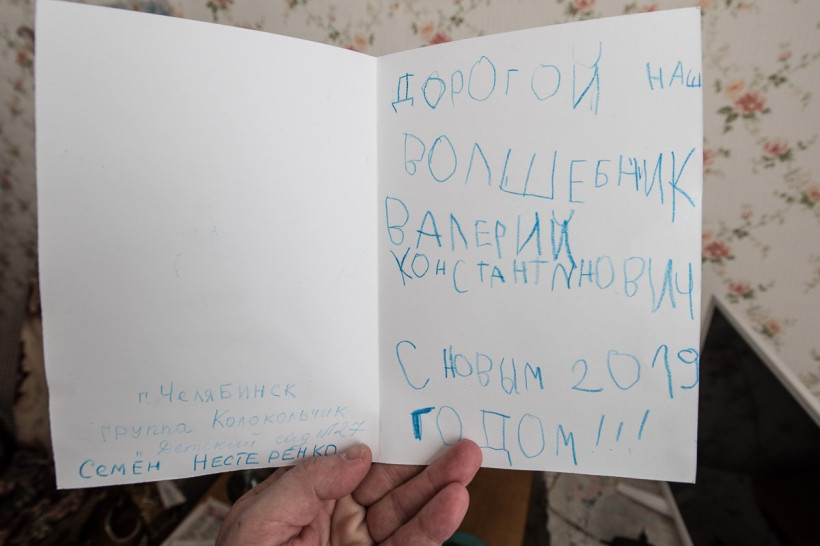 г. ЧеляБинск
группа Колокольчик
Детский сад №127
Семён НЕСТЕРЕНКО
ДОРОГОЙ НАШ
ВОЛШЕБНИК
ВАЛЕРИЙ
КОНСТАНТИНОВИЧ
С НОВЫМ 2019
ГОДОМ!!!